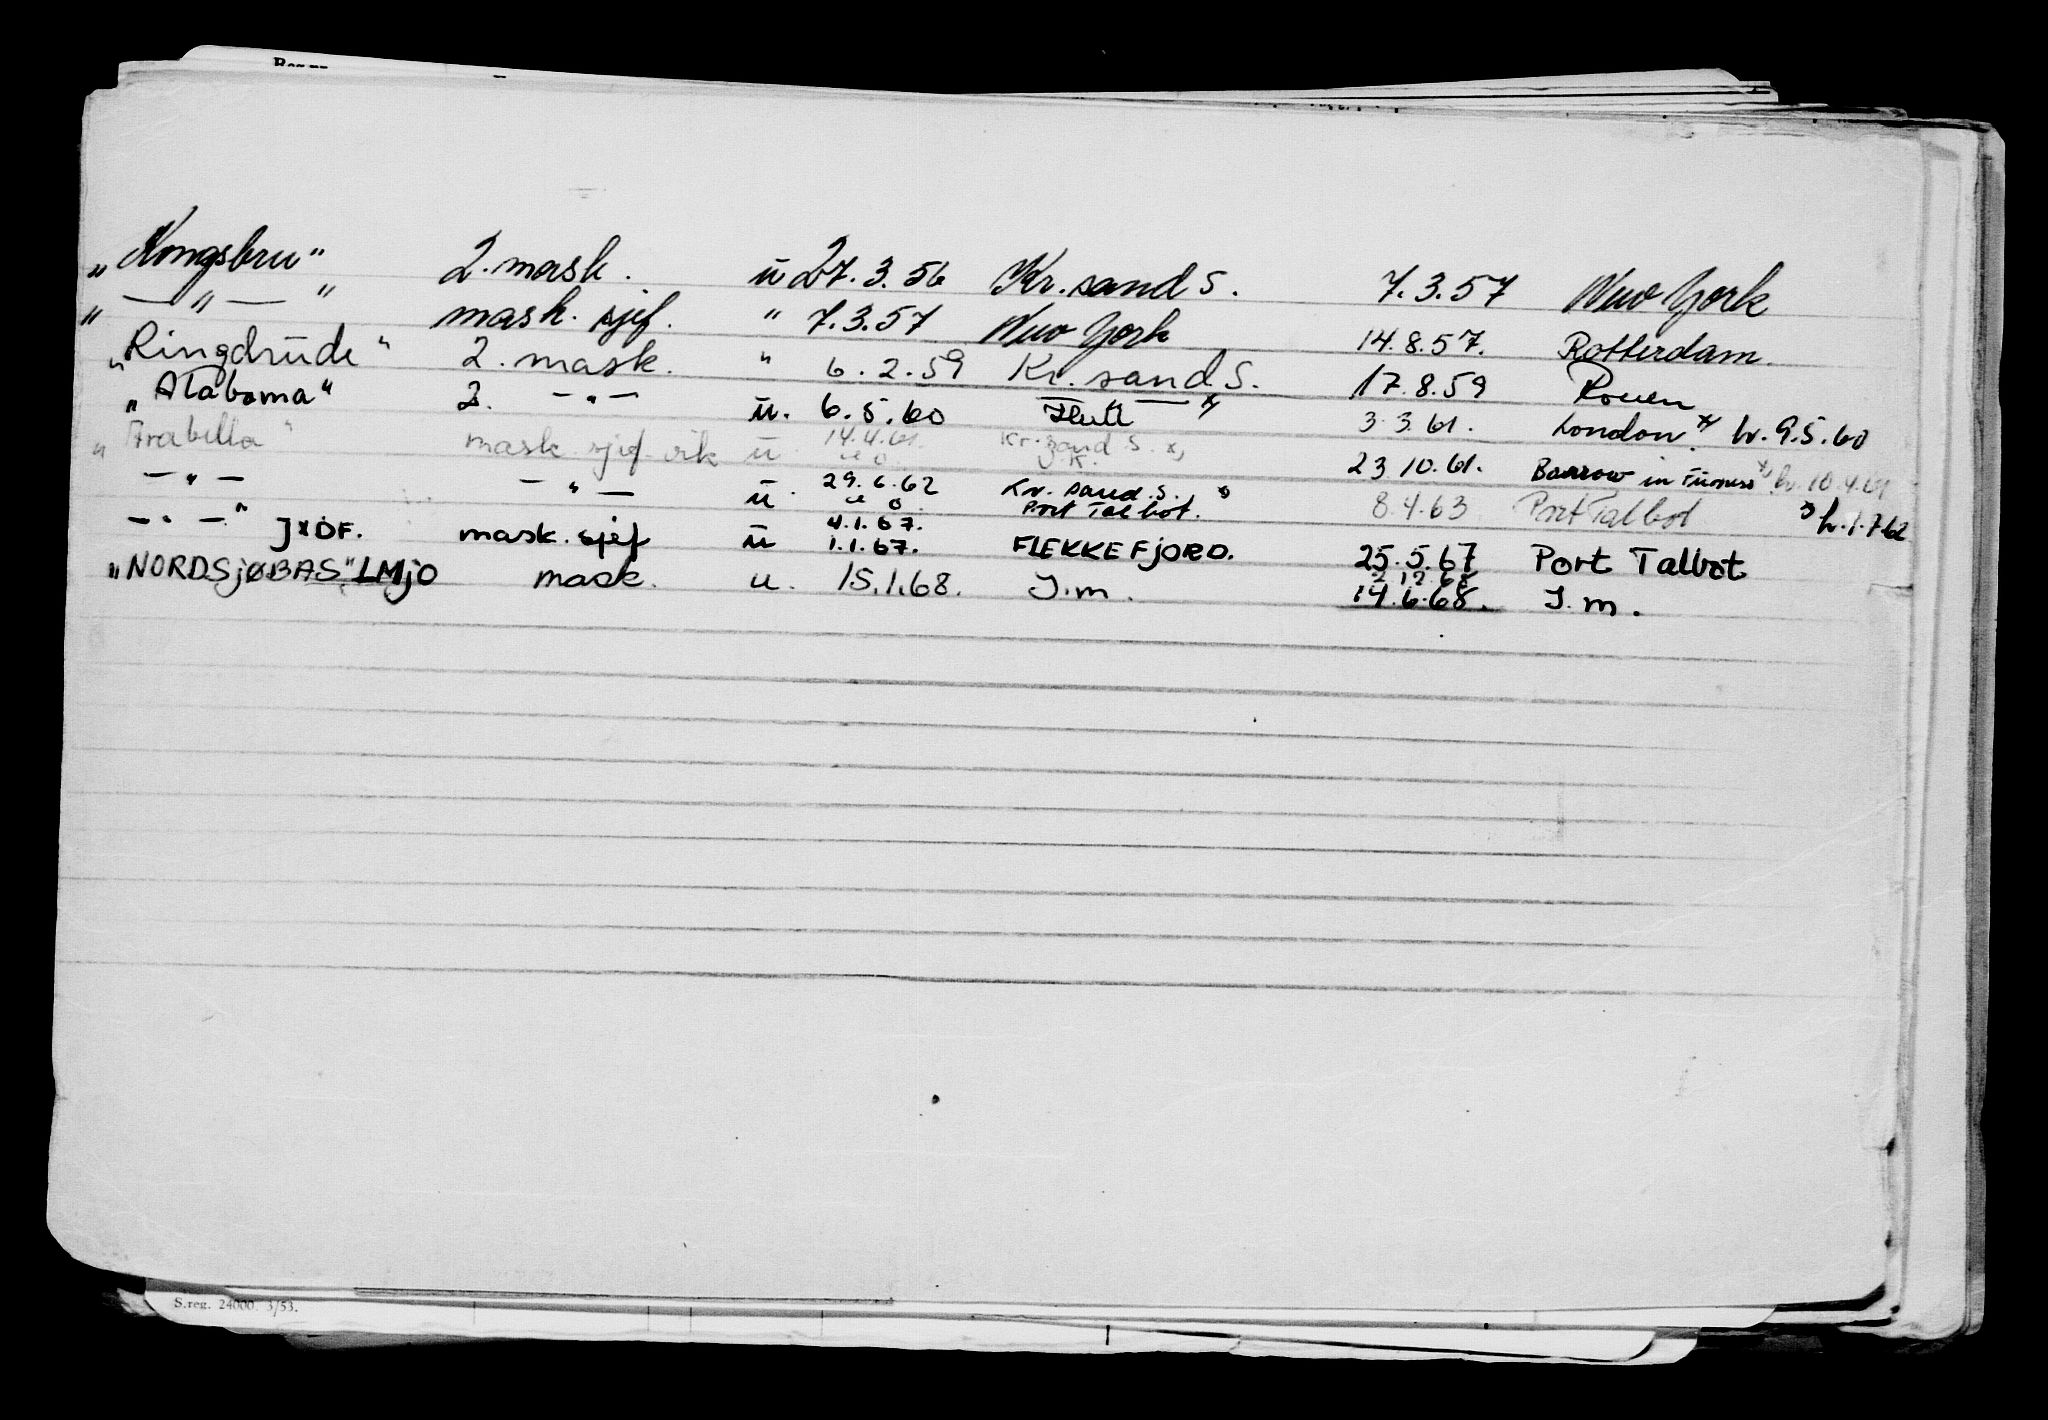 „Kongsbru" 2. mask. u 27.3.56 Kr.sand S. 7.3.57 New York
„ — " — " mask. sjef. " 7.3.57 New York 14.8.57. Rotterdam.
„Ringdrude" 2. mask. " 6.2.59 Kr. sand S. 17.8.59 Rouen
„Alabama" 2. — " — u. 6.5.60 Hull x) 3.3.61. London. x) hr. 9.5.60
„Arabella" mask. sjef. vik u 14.4.61. Kr.sand S. x) 23.10.61. Barrow in Furness x) hr. 10.4.61
— " — — " — u. 29.6.62 Kr. sand. S. 8.4.63 Port Talbot hr. 1.7.62
u o Port Talbot.
4.1.67.
— " — " JXDF. mask. sjef u 1.1.67. FLEKKEFJORD. 25.5.67 Port Talbot
2.12.68
„NORDSJØBAS" LMJO mask. u. 15.1.68. I.m. 14.6.68. I.m.
S.reg. 24000. 3/53.